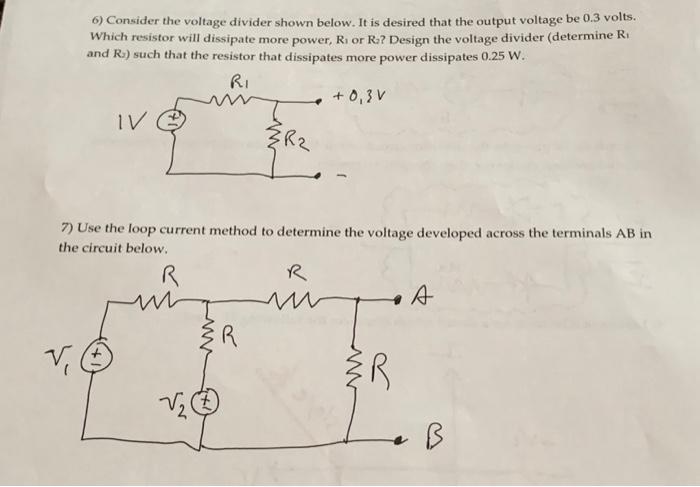 6) Consider the voltage divider shown below. It is desired that the output voltage be 0.3 volts.
Which resistor will dissipate more power, R₁ or R₂? Design the voltage divider (determine R₁
and R₂) such that the resistor that dissipates more power dissipates 0.25 W.
R1
+ 0,3V
1V
+
-
R2
-
7) Use the loop current method to determine the voltage developed across the terminals AB in
the circuit below.
R
R
A
R
V1
+
-
R
V2
+
-
B